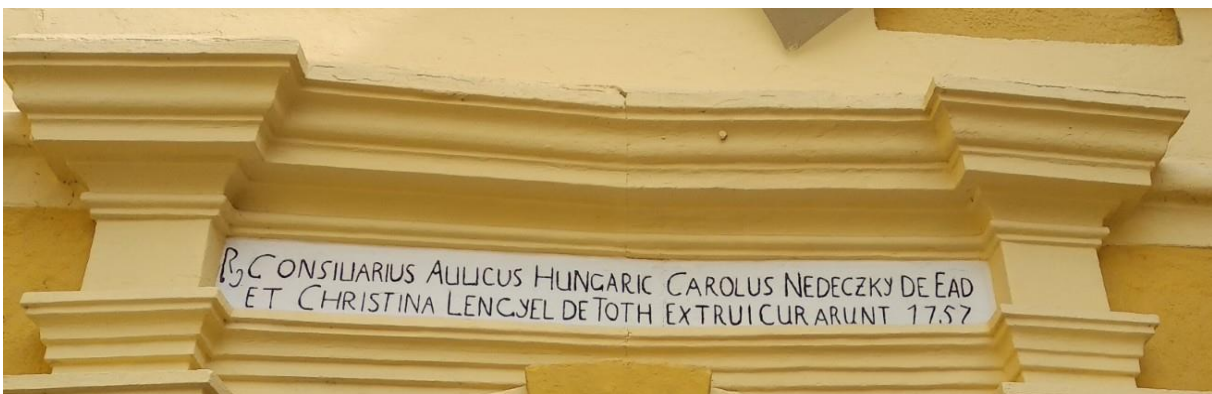 Rg CONSILIARIUS AULICUS HUNGARIC CAROLUS NEDECZKY DE EAD
ET CHRISTINA LENGYEL DE TOTH EXTRUI CURARUNT 1757